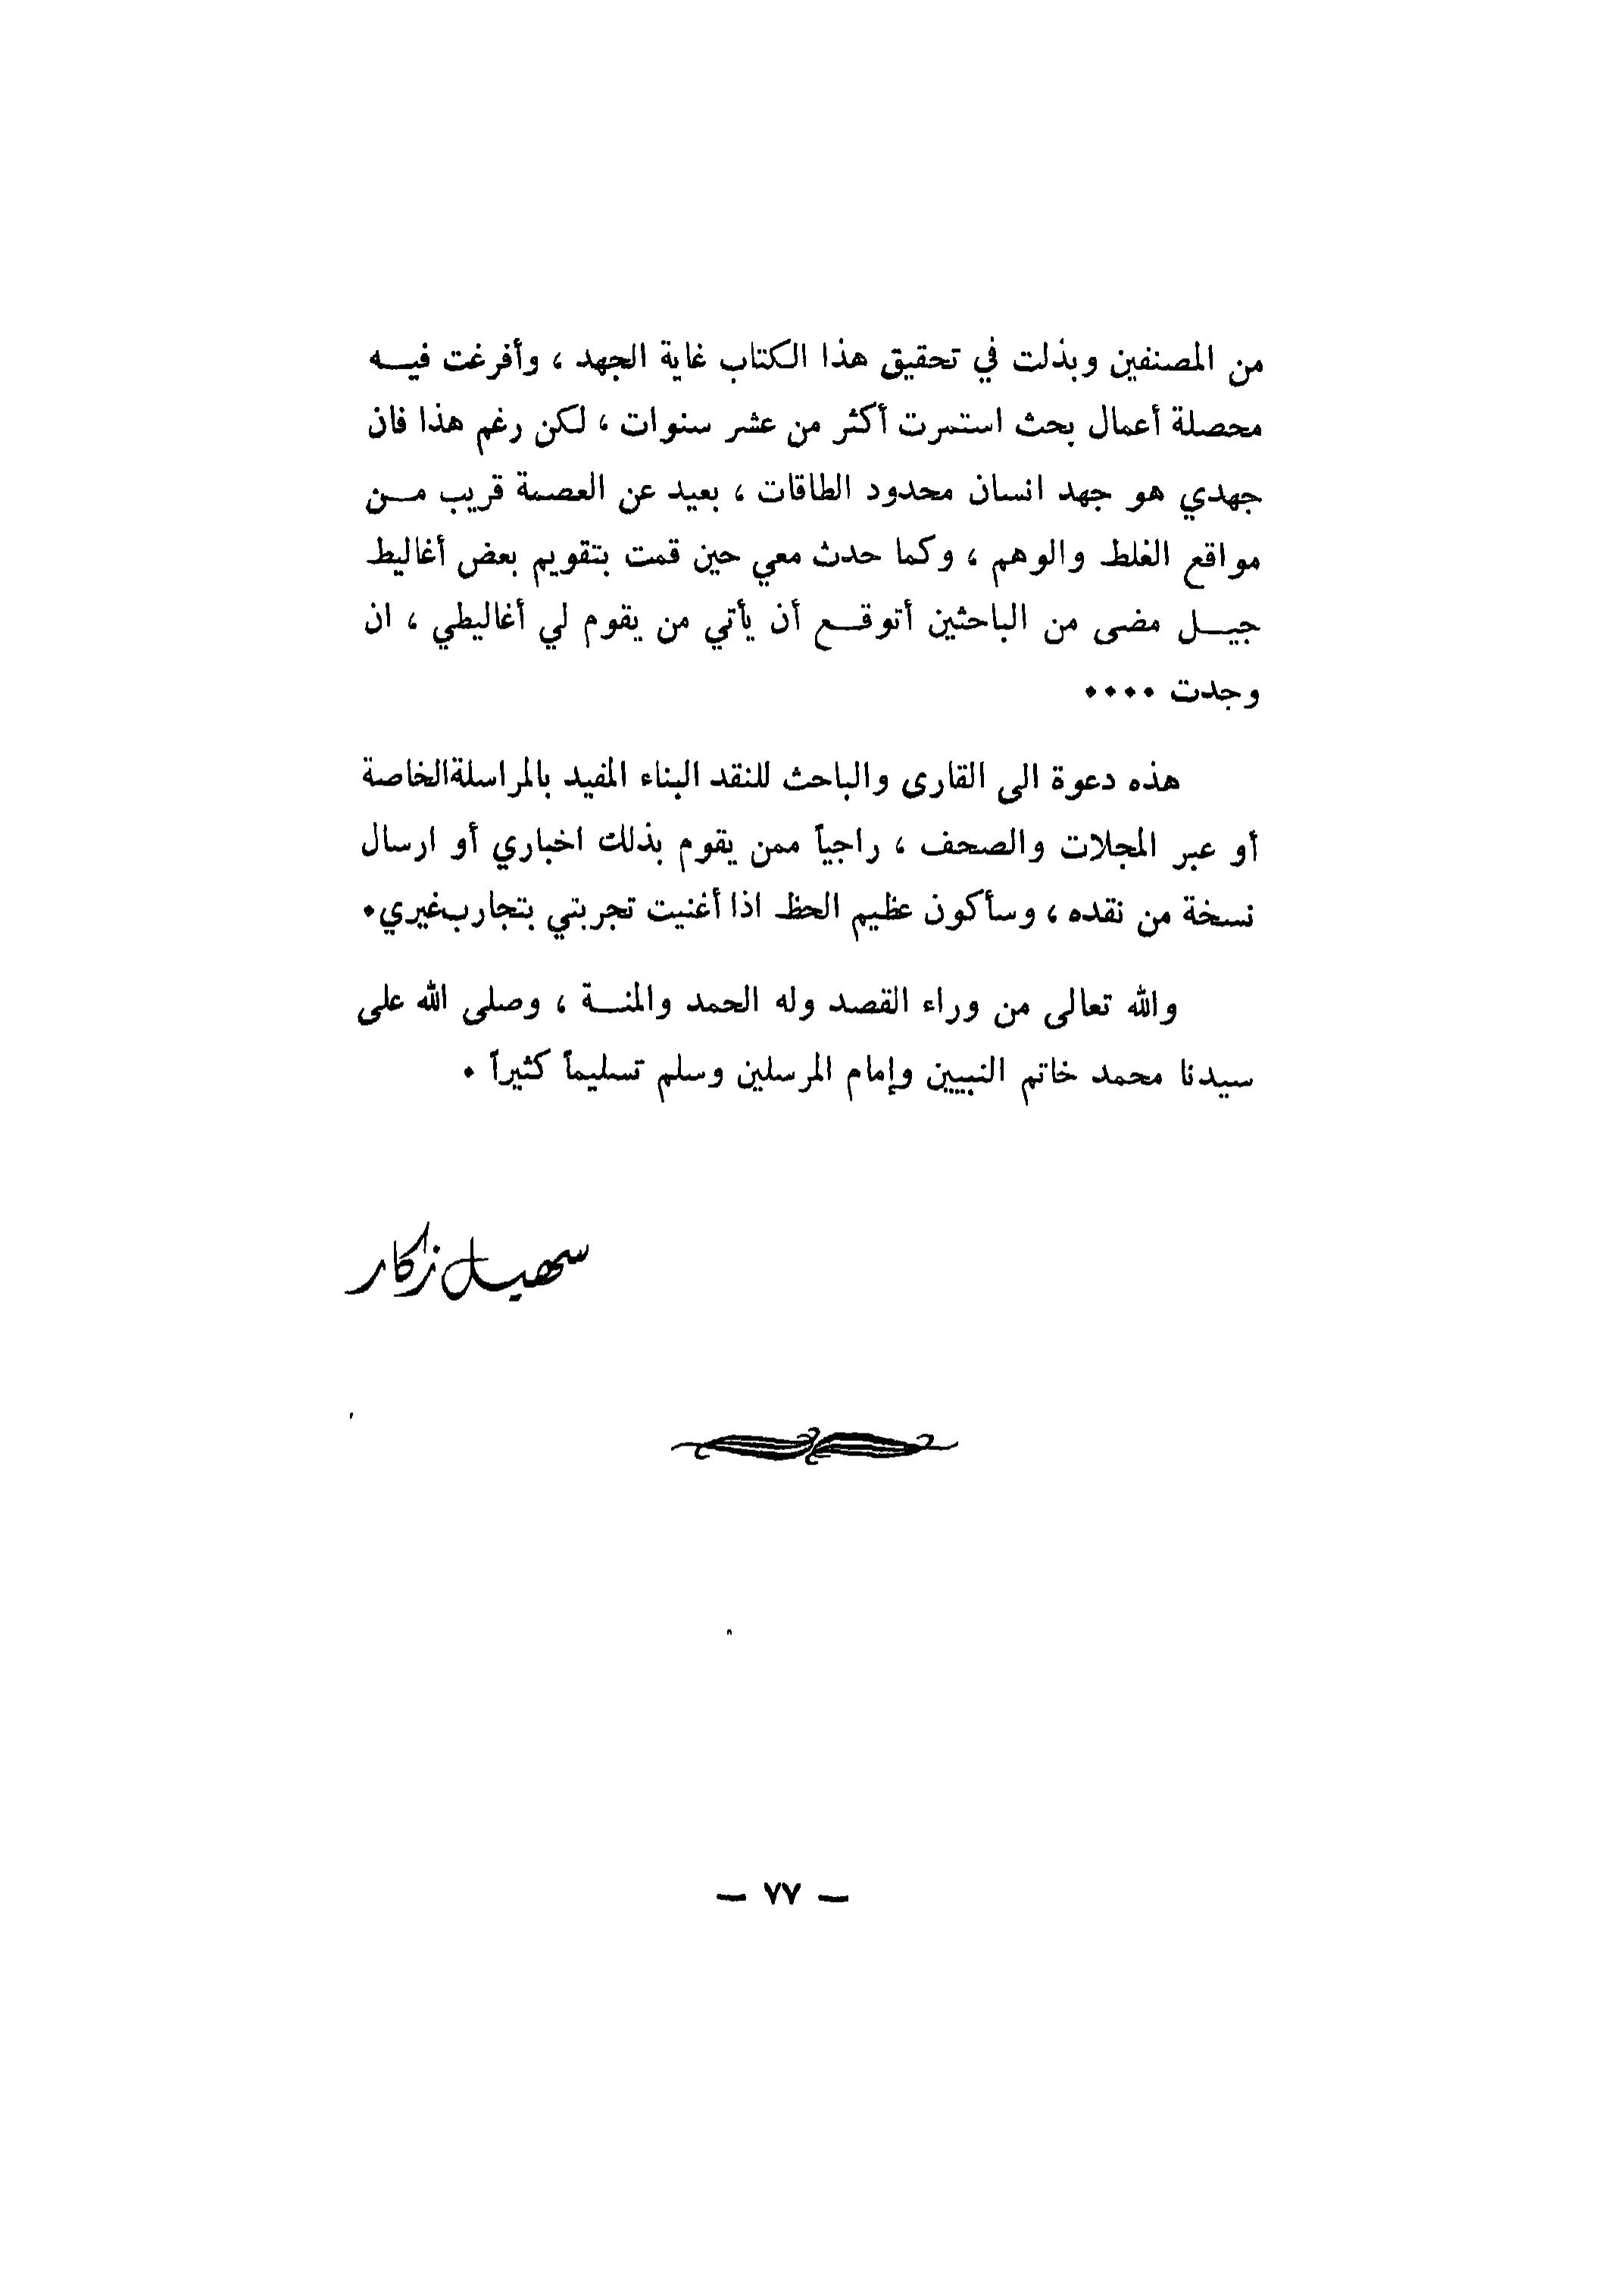 من المصنفين وبذلت في تحقيق هذا الكتاب غاية الجهد ، وأفرغت فيـــه
محصلة أعمال بحث استمرت أكثر من عشر سنوات ، لكن رغم هذا فان
جهدي هو جهد انسان محدود الطاقات ، بعيد عن العصمة قريب مـــن
مواقع الغلط والوهم ، وكما حدث معي حين قمت بتقويم بعض أغاليط
جيـــل مضى من الباحثين أتوقـــع أن يأتي من يقوم لي أغاليطي ، ان
وجدت ٠٠٠٠
هذه دعوة الى القارى والباحث للنقد البناء المفيد بالمراسلةالخاصة
أو عبر المجلات والصحف ، راجياً ممن يقوم بذلك اخباري أو ارسال
نسخة من نقده ، وسأكون عظيم الحظ اذا أغنيت تجربتي بتجارب غيري٠
والله تعالى من وراء القصد وله الحمد والمنـــة ، وصلى الله على
سيدنا محمد خاتم النبيين وإمام المرسلين وسلم تسليماً كثيراً ٠
سهيل زكار
— ٧٧ —